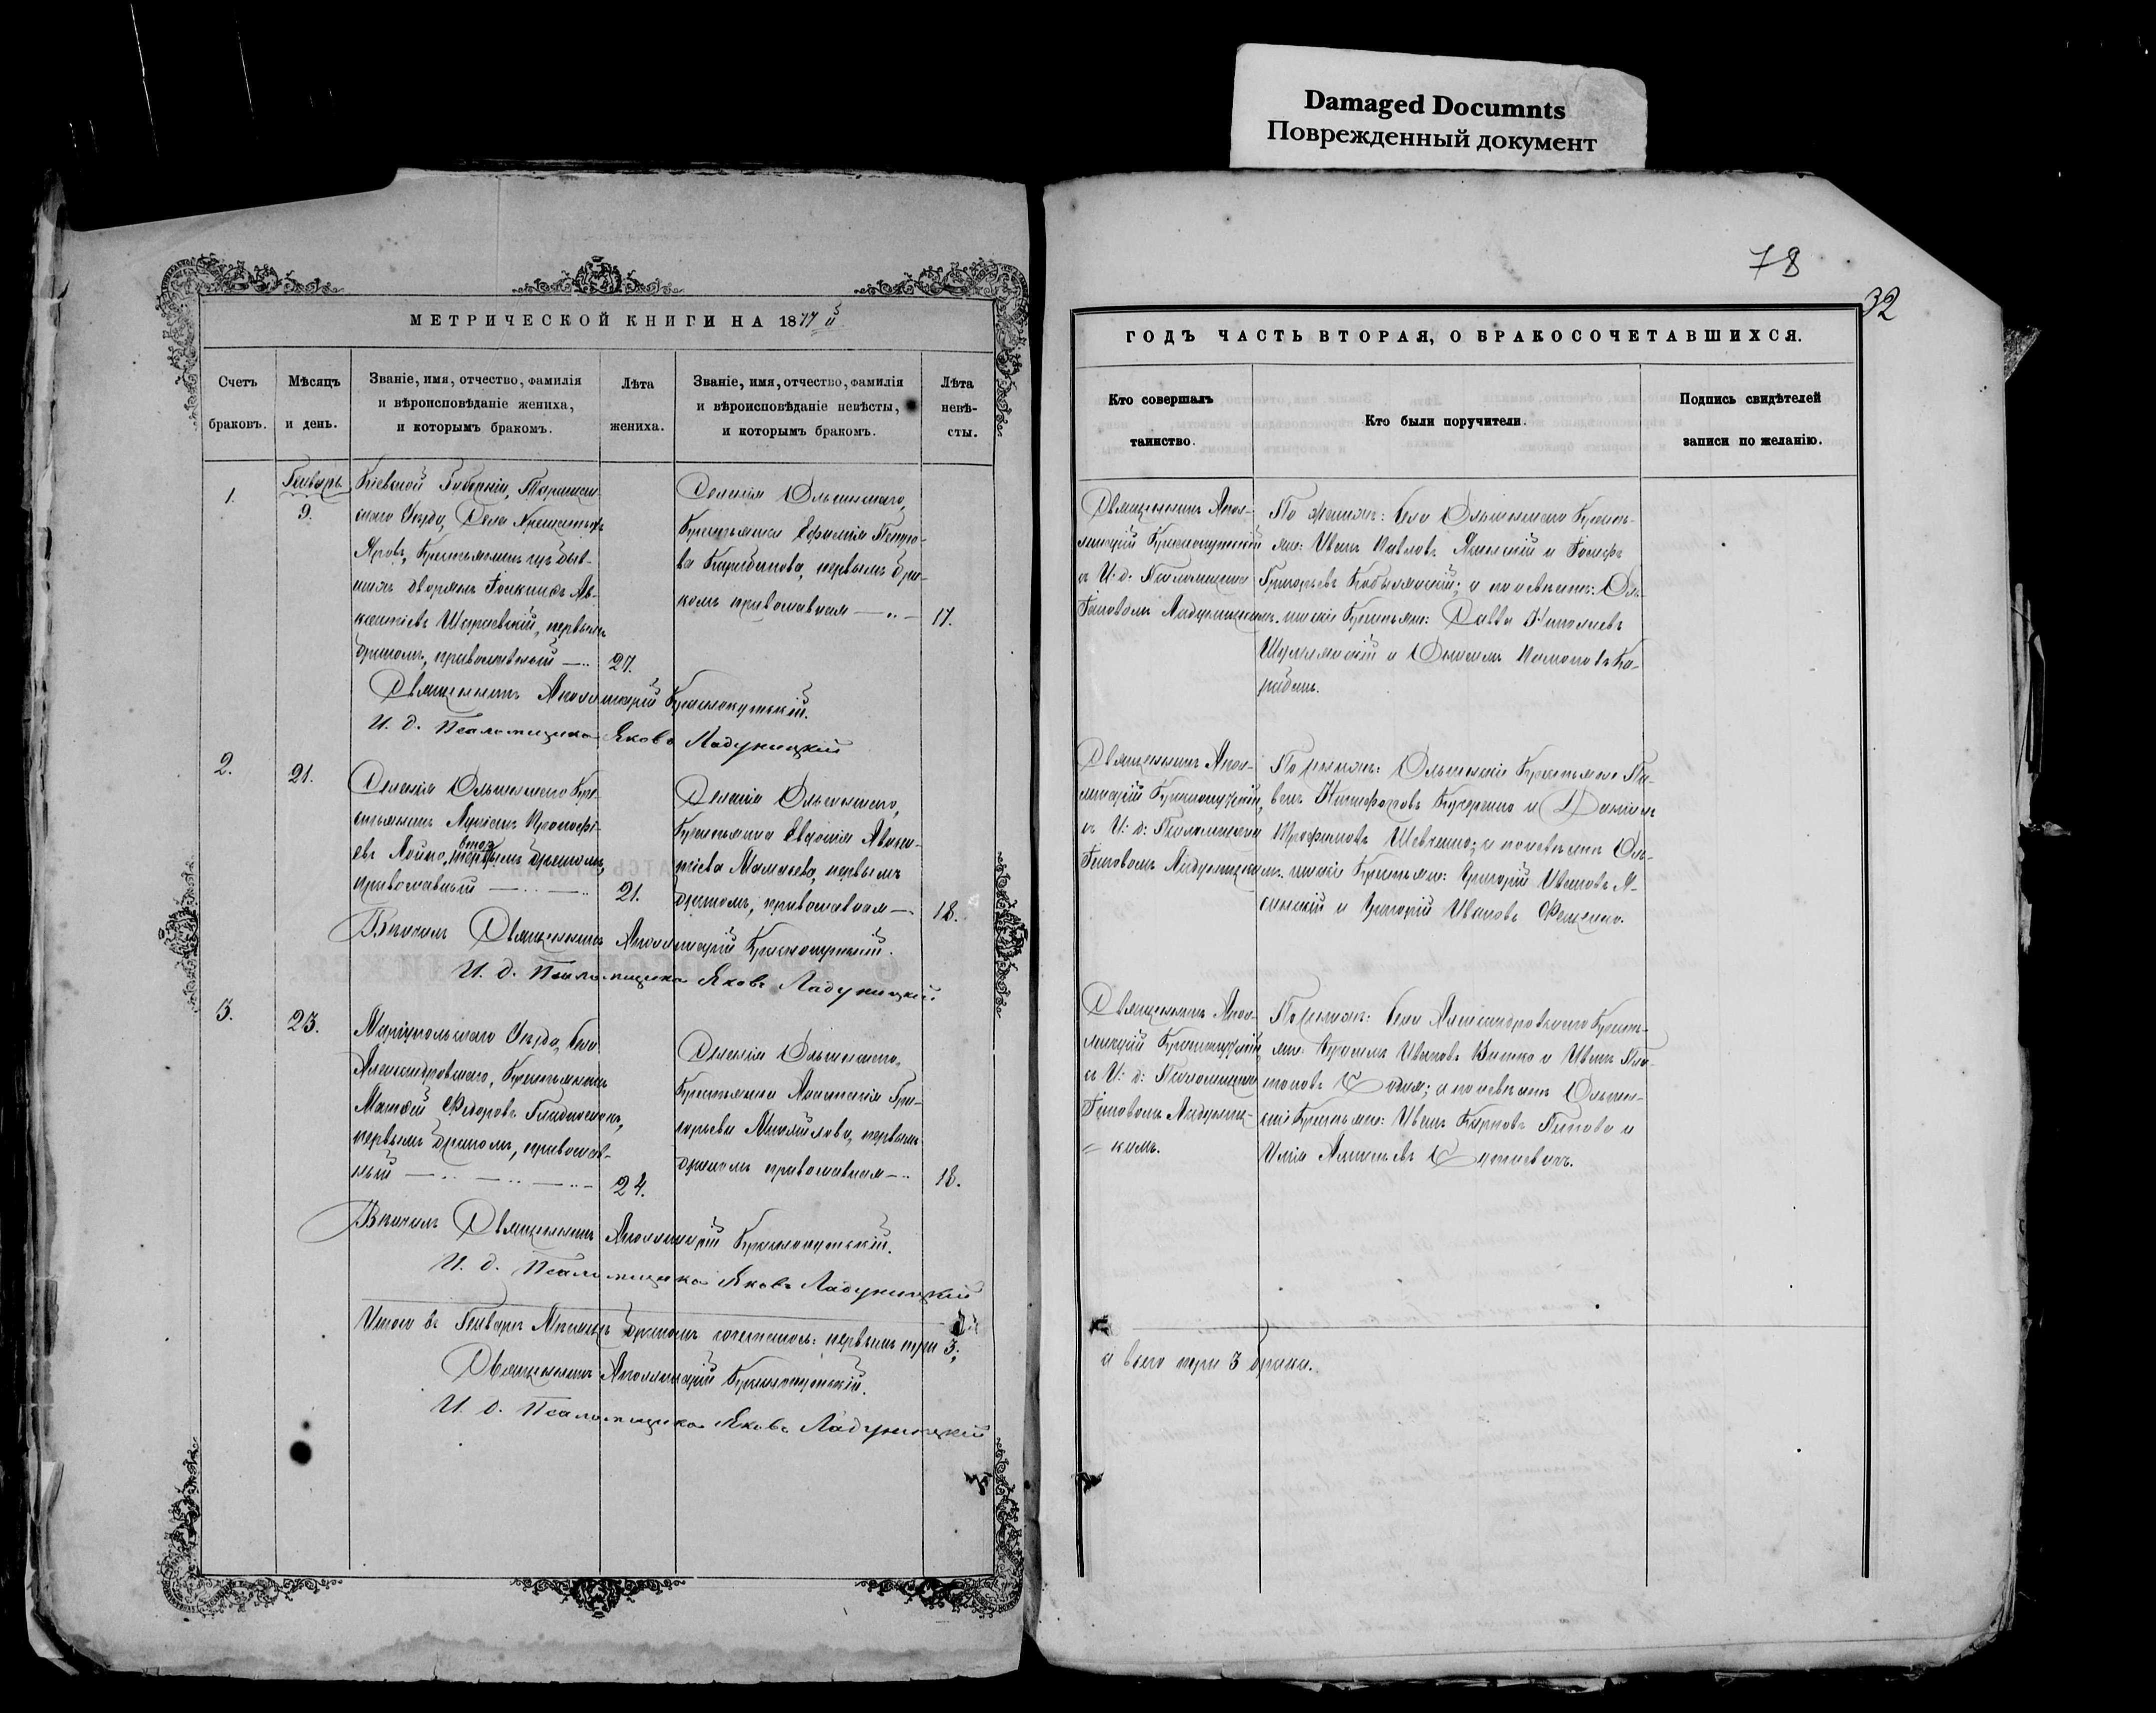 Damaged Documnts
Поврежденный документ
78
32
МЕТРИЧЕСКОЙ КНИГИ НА 1877й
Счетъ браковъ.
Мѣсяцъ и день.
Званіе, имя, отчество, фамилія и вѣроисповѣданіе жениха, и которымъ бракомъ.
Лѣта жениха.
Званіе, имя, отчество, фамилія и вѣроисповѣданіе невѣсты, и которымъ бракомъ.
Лѣта невѣ-сты.
1.
Генварь
9.
Кіевской Губерніи, Таращан-
скаго Уѣзда, Села
Яровъ, Крестьянинъ изъ быв-
шихъ дворянъ Іоакимъ Ав-
ксентіевъ Шараевскій, первымъ
бракомъ, православный
27.
Селенія Ольгинскаго,
Крестьянка Ефимія Петро-
ва первымъ бра-
комъ православная
17.
Священникъ Аполлинарій Краснокутскій.
И. д. Псаломщика Яковъ Ладуницкій
2.
21.
Селенія Ольгинскаго Кре-
стьянинъ Лукіанъ
евъ Лойко, вторымъ бракомъ,
православный
21.
Селенія Ольгинскаго,
Крестьянка Евдокія
первымъ
бракомъ, православная
18.
Вѣнчалъ Священникъ Аполлинарій Краснокутскій.
И. д. Псаломщика Яковъ Ладуницкій
3.
23.
Маріупольскаго Уѣзда, села
Александровскаго, Крестьянинъ
Матѳей Ѳедоровъ
первымъ бракомъ, православ-
ный
24.
Селенія Ольгинскаго,
Крестьянка Анастасія Гри-
горьева Михайлова, первымъ
бракомъ православная
18.
Вѣнчалъ Священникъ Аполлинарій Краснокутскій.
И. д. Псаломщика Яковъ Ладуницкій
Итого въ Генварѣ Мѣсяцѣ бракомъ сочеталось: первымъ три 3;
Священникъ Аполлинарій Краснокутскій.
И. д. Псаломщика Яковъ Ладуницкій
ГОДЪ ЧАСТЬ ВТОРАЯ, О БРАКОСОЧЕТАВШИХСЯ.
Кто совершалъ таинство.
Кто были поручители.
Подпись свидѣтелей записи по желанію.
Священникъ Апол-
линарій Краснокутскій
съ И: д: Псаломщика
Іаковомъ Ладуницкимъ.
По женихѣ: Села Ольгинскаго Кресть-
яне: Иванъ Павловъ Ясинскій и Іосифъ
Григорьевъ а по невѣстѣ: Оль-
гинскіе Крестьяне: Савва
и
Священникъ Апол-
линарій Краснокутскій,
съ И: д: Псаломщика
Іаковомъ Ладуницкимъ.
По женихѣ: Ольгинскіе Крестьяне Па-
велъ Никифоровъ Кучеренко и Даніилъ
Трофимовъ Шевченко; и по невѣстѣ Оль-
гинскіе Крестьяне: Григорій Ивановъ Я-
синскій и Григорій Ивановъ
Священникъ Апол-
линарій Краснокутскій
съ И: д: Псаломщика
Іаковомъ Ладуниц-
= кимъ.
По женихѣ: Села Александровскаго Кресть-
яне: Герасимъ Ивановъ и Иванъ Пла-
тоновъ а по невѣстѣ Ольгин-
скіе Крестьяне: Иванъ Карповъ и
Илія
а всего три 3 брака.